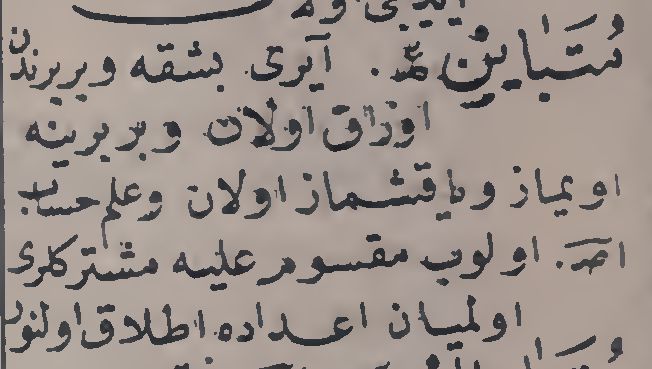 مُتَبَايِنْ عـ. آیری بشقه وبربرندن
اوزاق اولان وبربرینه
اویماز ویاقشماز اولان وعلم حساب
اصـ. اولوب مقسوم علیه مشترکلری
اولمیان اعداده اطلاق اولنور